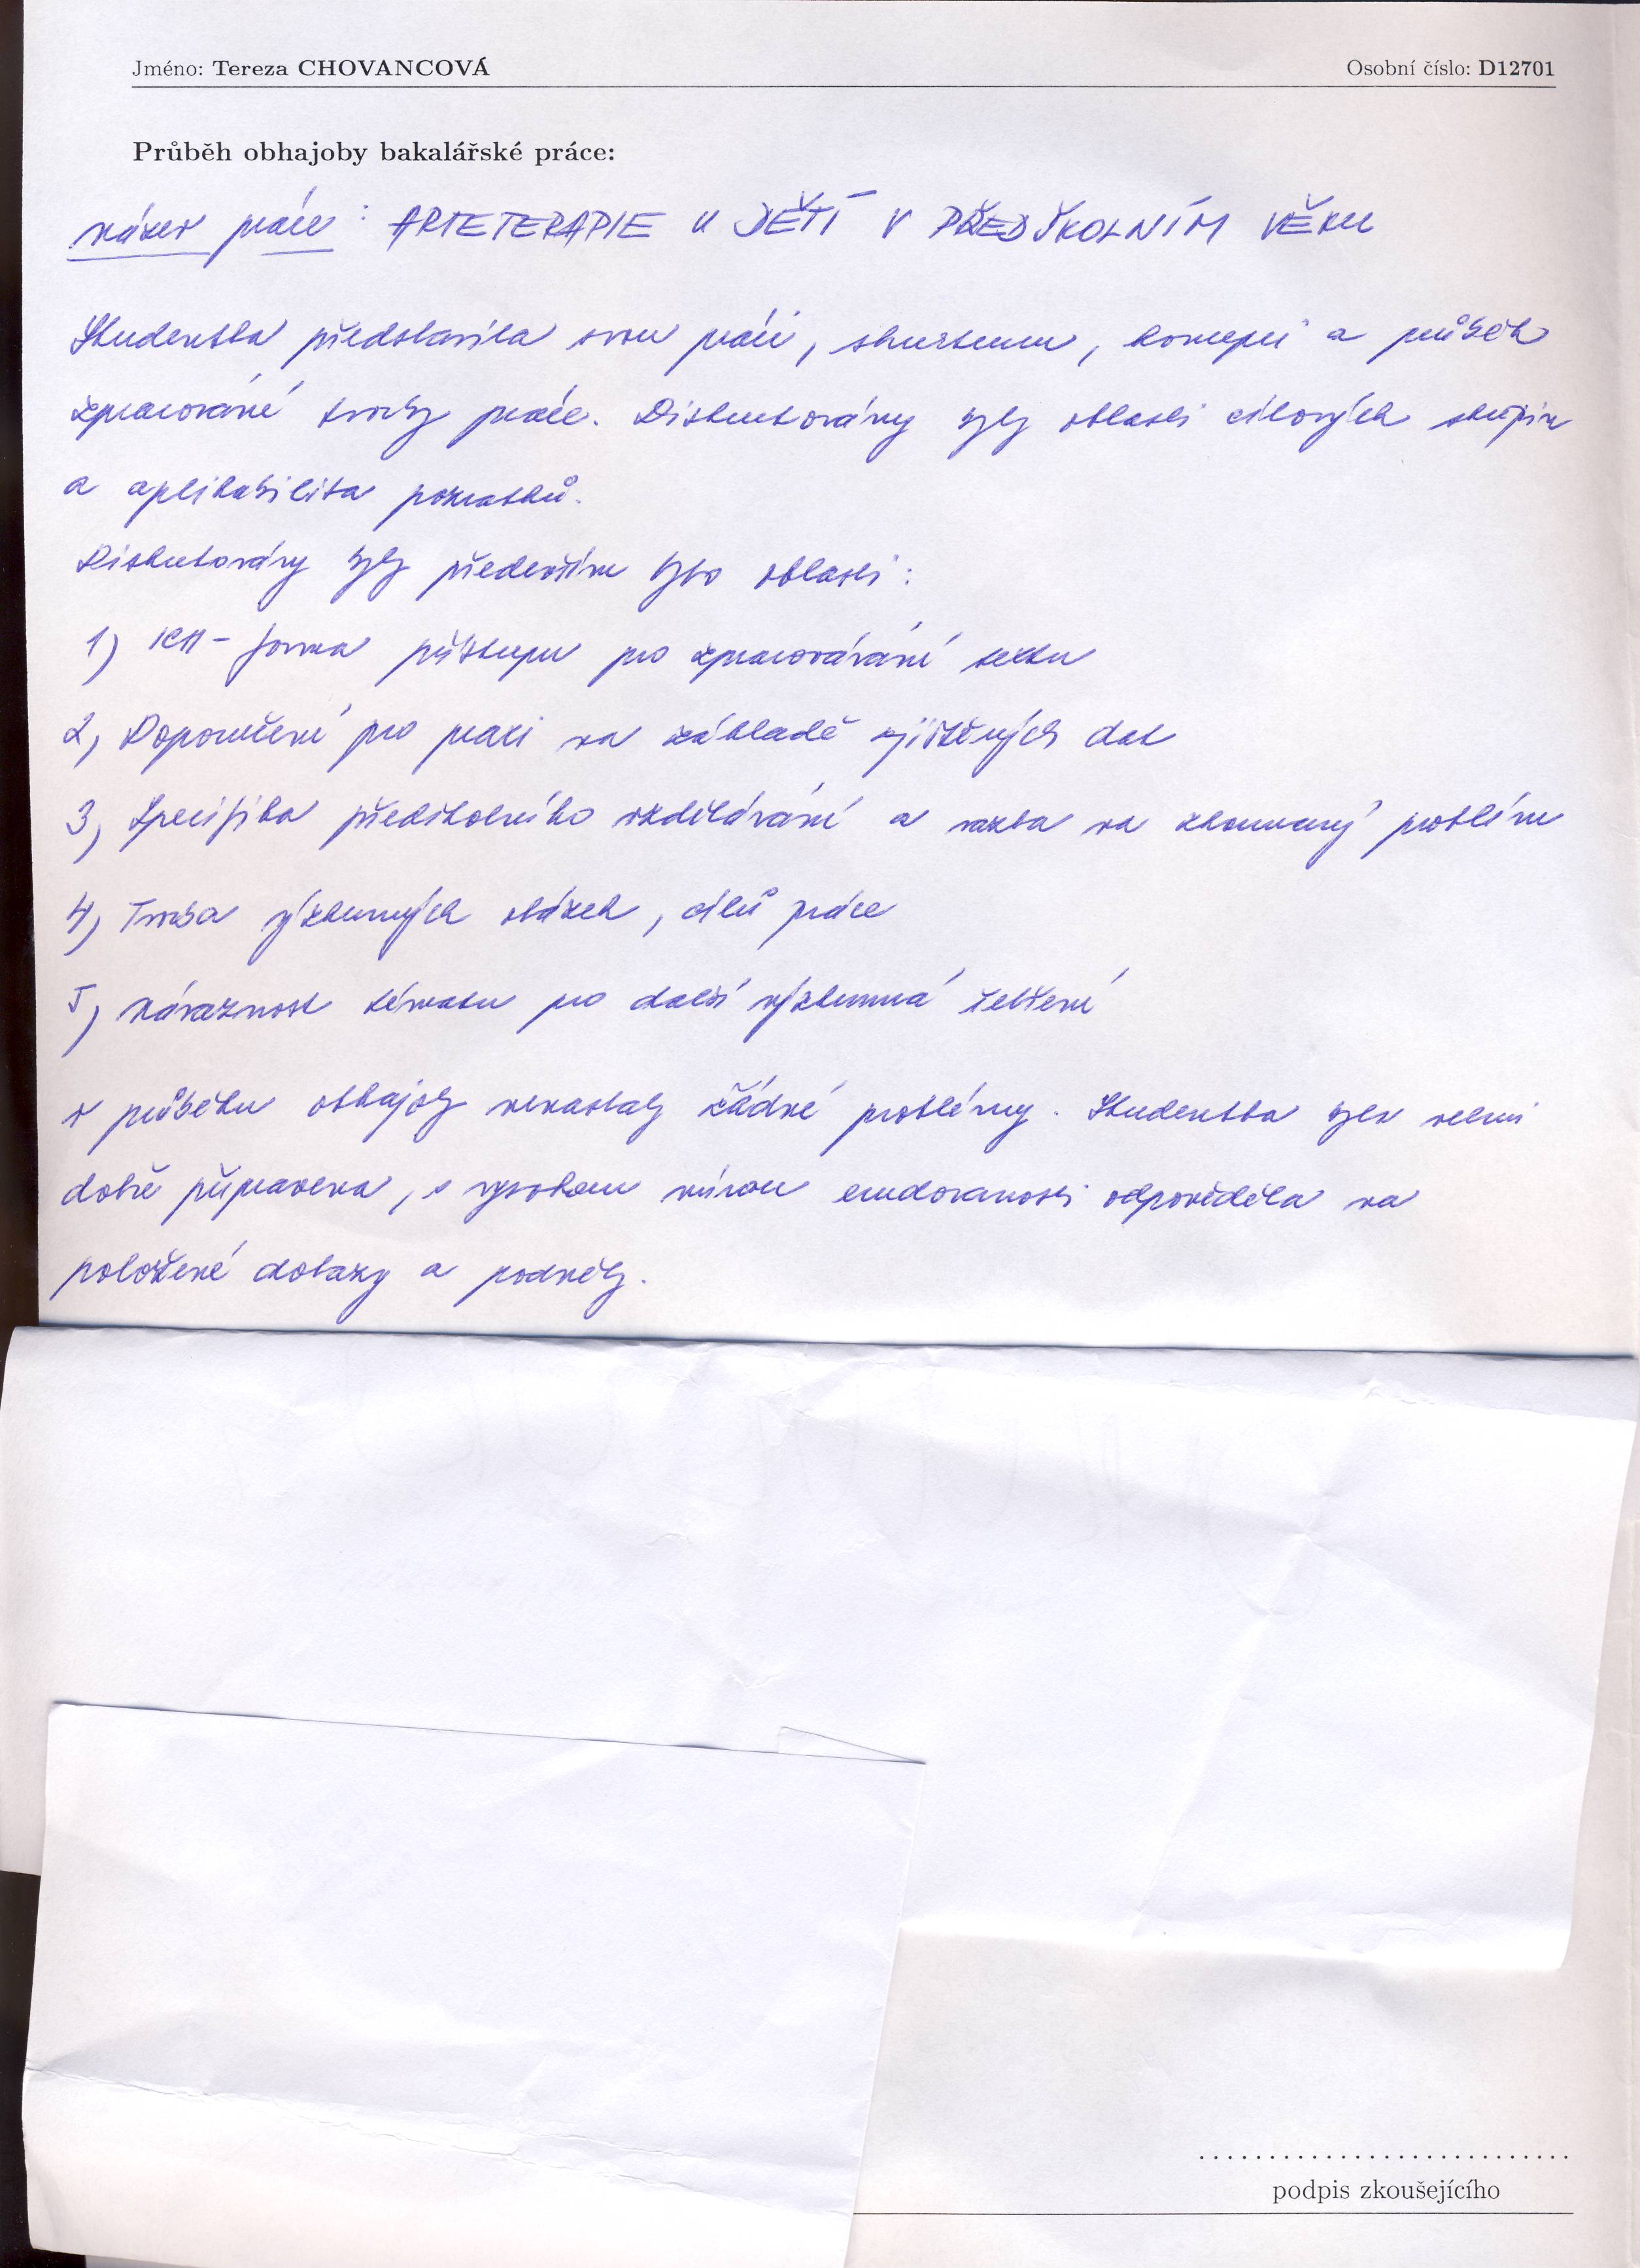 Jméno: Tereza CHOVANCOVÁ Osobní číslo: D12701
Průběh obhajoby bakalářské práce:
Název práce: ARTETERAPIE U DĚTÍ V PŘEDŠKOLNÍM VĚKU
Studentka představila svou práci, strukturu, koncepci a průběh
zpracování tvorby práce. Diskutovány byly oblasti cílových skupin
a aplikabilita poznatků.
Diskutovány byly především tyto oblasti:
1) forma přístupu pro zpracovávání textu
2) Doporučení pro praxi na základě zjištěných dat
3) Specifika předškolního vzdělávání a vazba na zkoumaný problém
4) Tvorba výzkumných otázek, cílů práce
5) Návaznost tématu pro další výzkumná šetření
V průběhu obhajoby nenastaly žádné problémy. Studentka byla velmi
dobře připravena, s vysokou mírou erudovanosti odpověděla na
položené dotazy a podněty.
podpis zkoušejícího